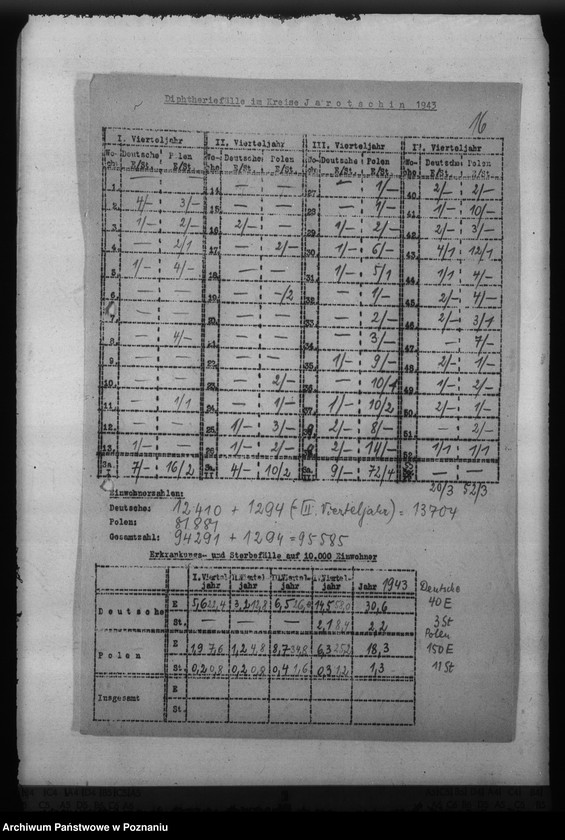 Diphtheriefälle im Kreise Jarotschin 1943
16
I. Vierteljahr II. Vierteljahr III. Vierteljahr IV. Vierteljahr
Woch. Deutsche E/St. Polen E/St. Woche Deutsche E/St. Polen E/St. Woche Deutsche E/St. Polen E/St. Woche Deutsche E/St. Polen E/St.
1. — — 14. — — 27. — 1/— 40. 2/— 2/—
2. 4/— 3/— 15. — — 28. — 1/— 41. 1/— 10/—
3. 1/— 2/— 16. 2/— — 29. 1/— 2/— 42. 2/— 3/—
4. — 2/1 17. — 2/— 30. 1/— 6/— 43. 4/1 12/1
5. 1/— 4/— 18. — — 31. 1/— 5/1 44. 1/1 4/—
6. — — 19. — -/2 32. — 1/— 45. 2/— 4/—
7. — — 20. — — 33. — 2/— 46. 2/— 3/1
8. — 4/— 21. — — 34. — 3/— 47. — 7/—
9. — — 22. — — 35. 1/— 9/— 48. 2/— 1/—
10. — — 23. — 2/— 36. — 10/1 49. 1/— 2/—
11. — 1/1 24. — 1/— 37. 1/— 10/2 50. 2/— 1/—
12. — — 25. 1/— 3/— 2/— 8/— 51. — 2/—
13. 1/— — 26. 1/— 2/— 2/— 14/— 52. 1/1 1/1
Sa. 7/— 16/2 Sa. 4/— 10/2 Sa. 9/— 72/4 — —
20/3 52/3
Einwohnerzahlen:
Deutsche: 12410 + 1294 (= II. Vierteljahr) = 13704
Polen: 81881
Gesamtzahl: 94291 + 1294 = 95585
Erkrankungs- und Sterbefälle auf 10.000 Einwohner
I. Viertel-jahr II. Viertel-jahr III. Viertel-jahr IV. Viertel-jahr Jahr 1943
Deutsche E 5,6 22,4 3,2 12,8 6,5 26,0 14,5 58,0 30,6
St. — — — 2,1 8,4 2,2
Polen E 1,9 7,6 1,2 4,8 8,7 34,8 6,3 25,2 18,3
St. 0,2 0,8 0,2 0,8 0,4 1,6 0,3 1,2 1,3
Insgesamt E
St.
Deutsche
40 E
3 St
Polen
150 E
11 St
Archiwum Państwowe w Poznaniu